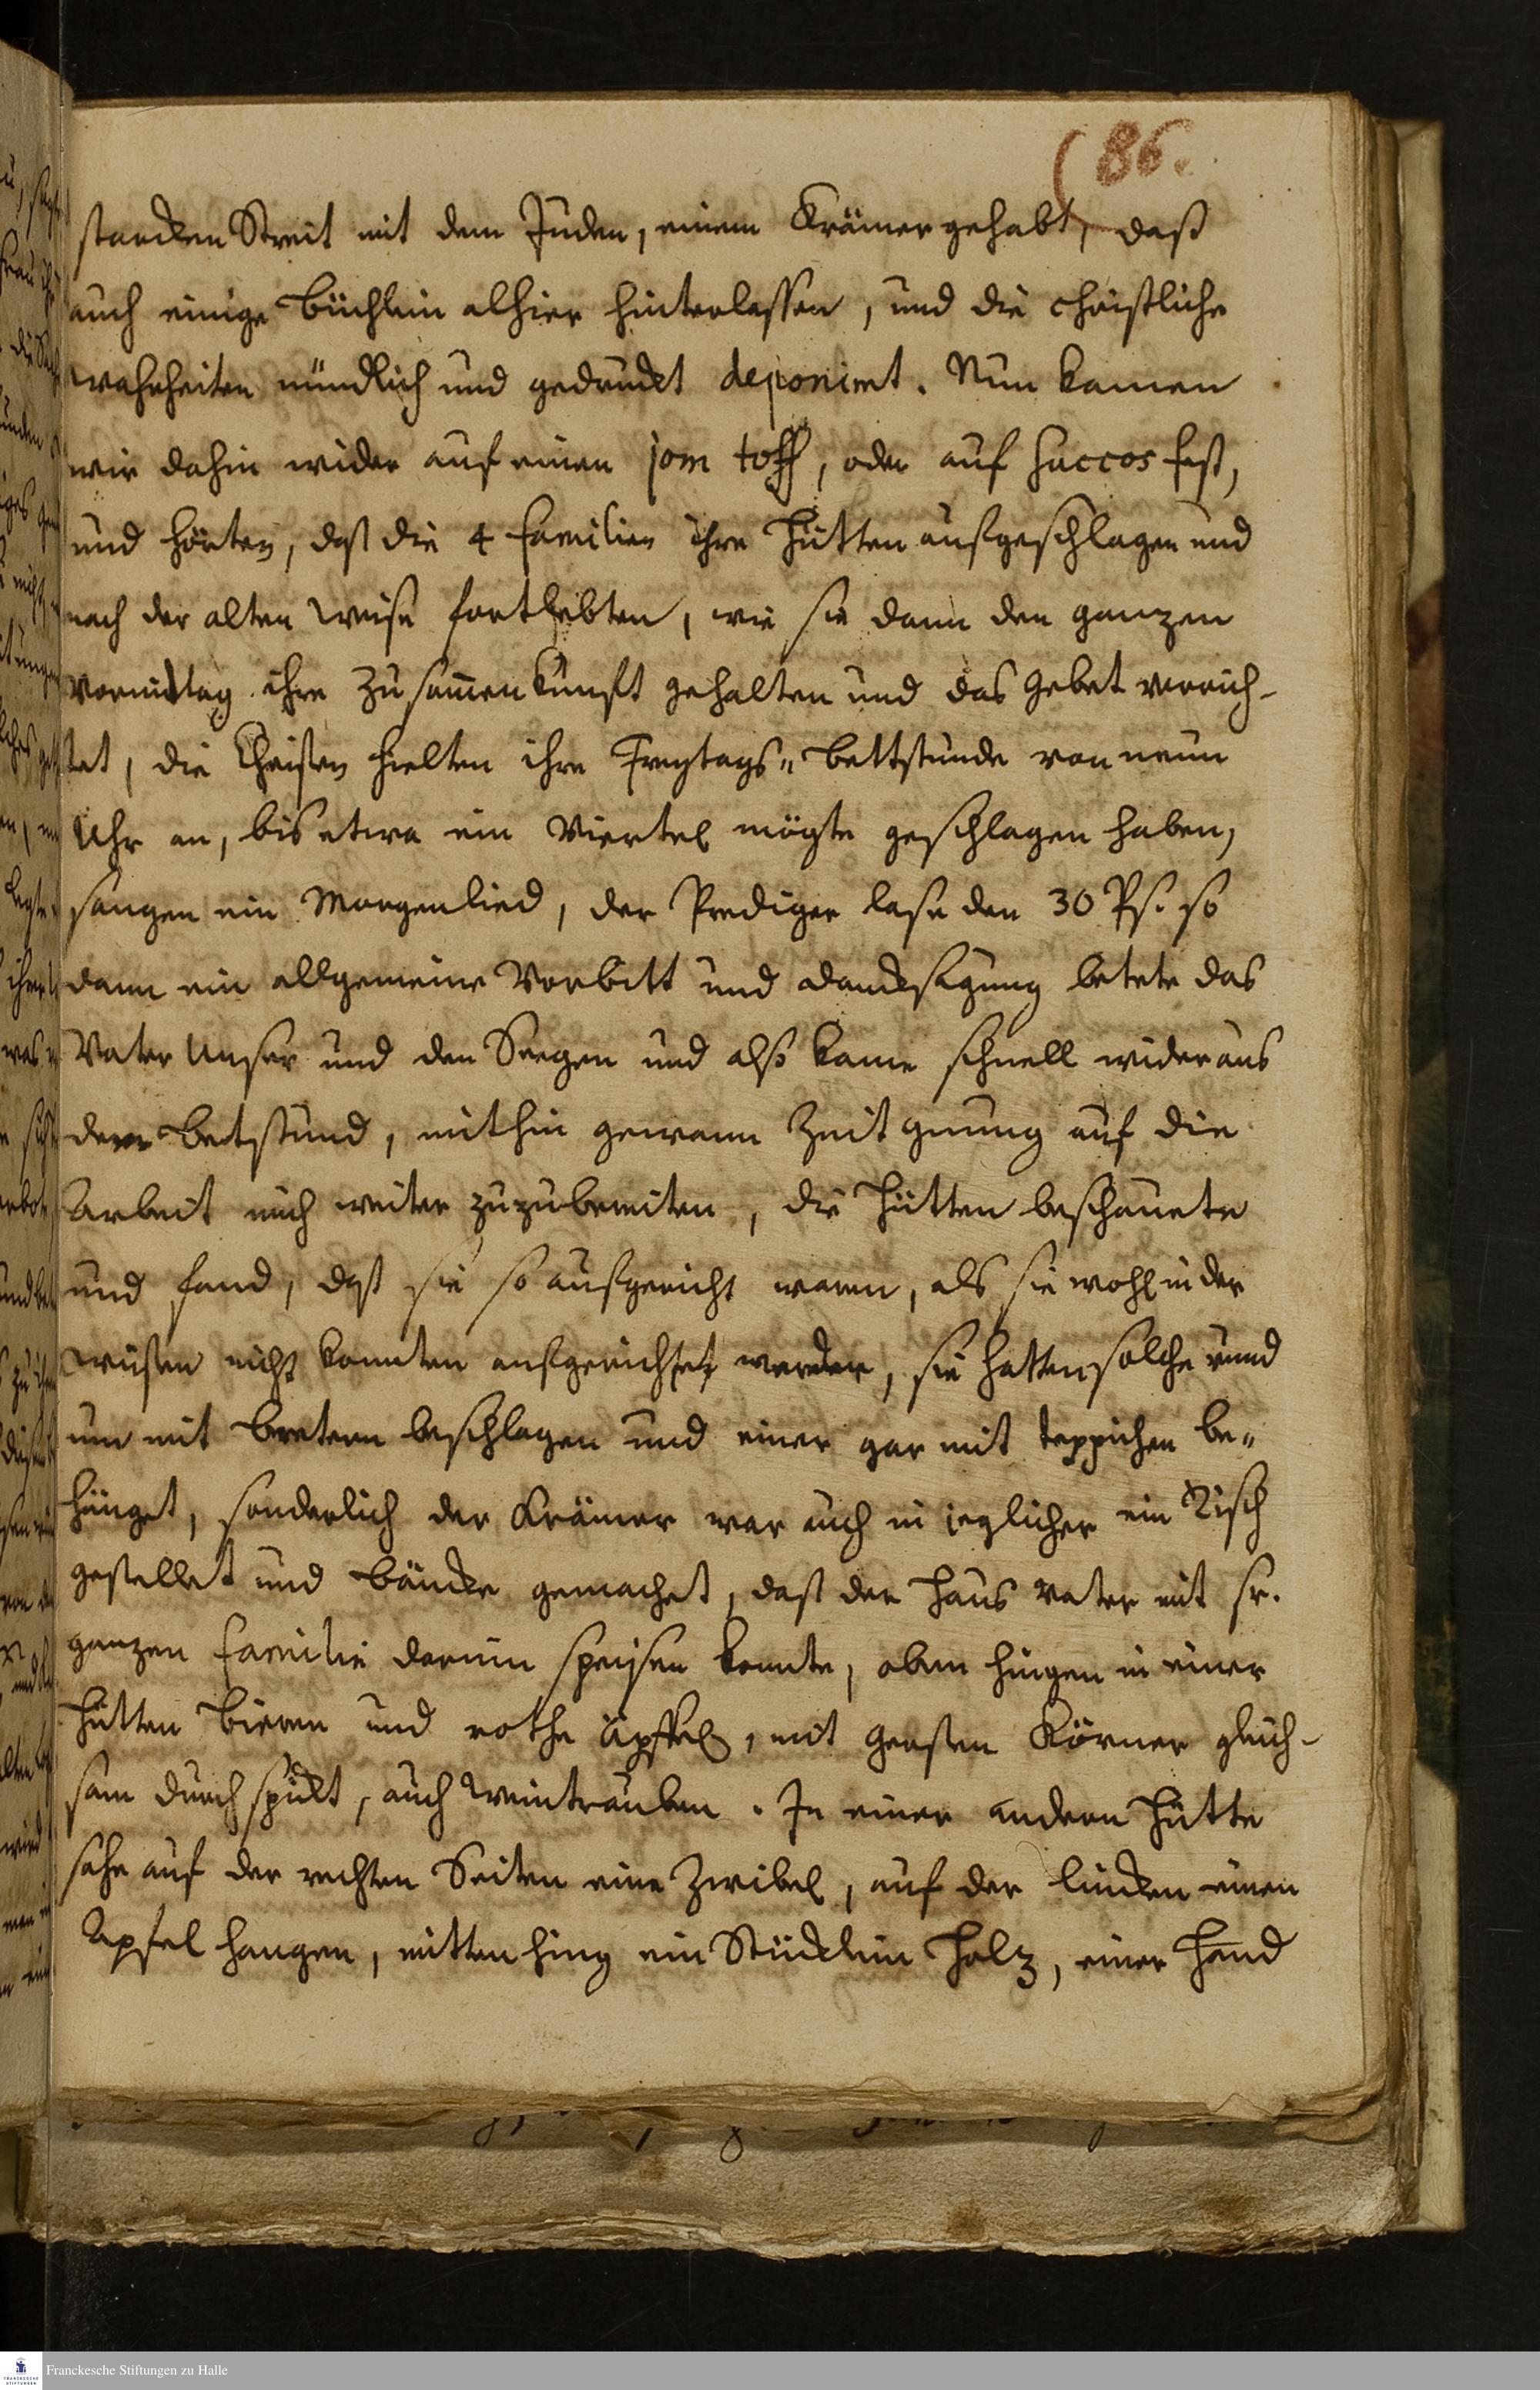 (86.
starcken Streit mit dem Juden, einem Krämer gehabt, daß
auch einige Büchlein alhier hinterlassen, und die christliche
Wahrheiten mündlich und gedruckt deponirt. Nun kamen
wir dahin wider auf einen jom toff, oder auf Succos fest,
und hörten, daß die 4 Familien ihre Hütten aufgeschlagen und
nach der alten Weise fortlebten, wie sie dann den ganzen
Vormittag ihre Zusam̅enkunft gehalten und das Gebet verrich-
tet, die Christen hielten ihre Freytags-Bettstunde von neun
Uhr an, bis etwa ein Viertel mögte geschlagen haben,
sangen ein Morgenlied, der Prediger lase den 30 Ps. so
dann ein allgemeine Vorbitt und Dancksagung betete das
Vater Unser und den Seegen und also kame schnell wider aus
der Betstund, mithin gewann Zeit gnung auf die
Arbeit mich weiter zuzubereiten, die Hütten beschauete
und fand, daß sie so aufgericht waren, als sie wohl in der
Wüsten nicht konnten aufgerichtet werden, sie hatten solche rund
um mit Bretern beschlagen und einer gar mit Teppichen be-
hänget, sonderlich der Krämer war auch in jeglicher ein Tisch
gestellet und Bäncke gemachet, daß der Haus Vater mit sr.
ganzen Familie darinn speisen konnte, oben hingen in einer
Hütten Bieren und rothe Äpffel, mit Gersten Körner gleich-
sam durchspickt, auch Weintrauben. In einer andern Hütte
sahe auf der rechten Seiten eine Zwibel, auf der lincken einen
Apfel hangen, mitten hing ein Stücklein Holz, einer Hand
Franckesche Stiftungen zu Halle